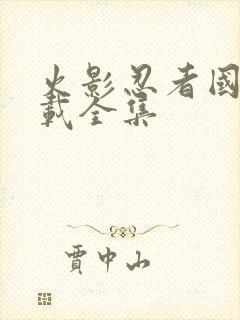 火影忍者國
載全集
賈中山